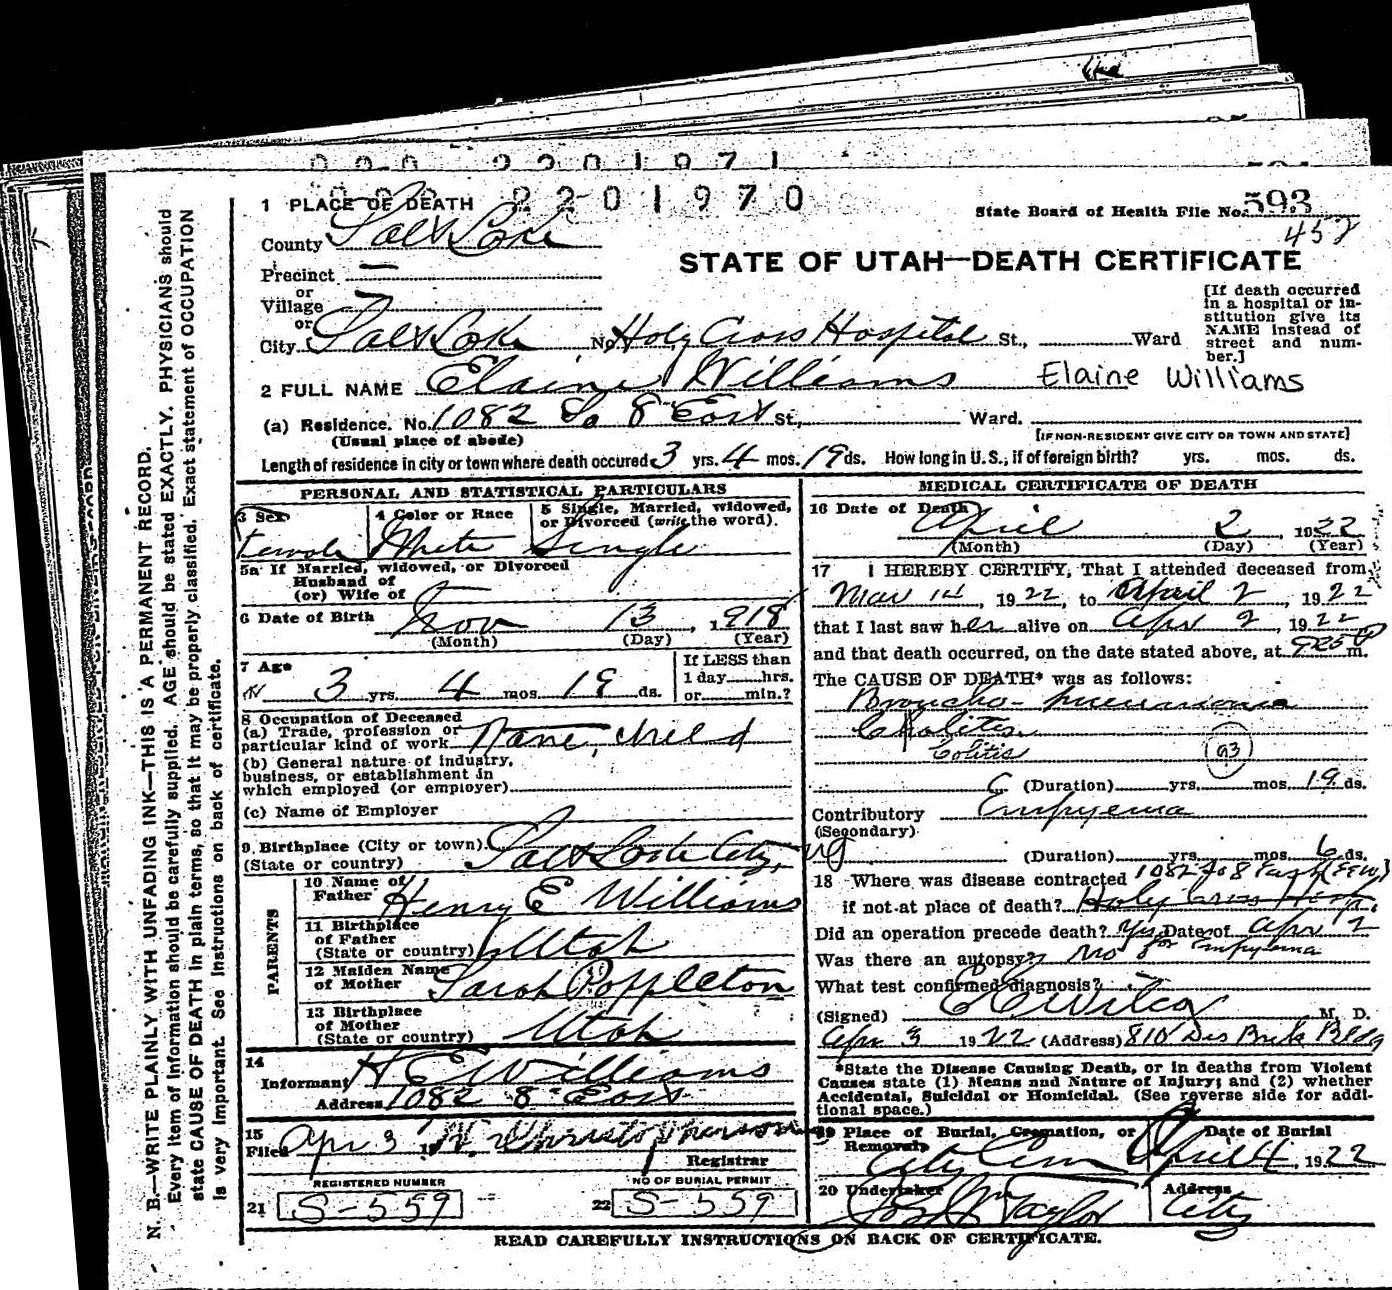 2201971
1 PLACE OF DEATH 2201970
State Board of Health File No. 593
452
County Salt Lake
Precinct —
or
Village —
or
City Salt Lake No. Holy Cross Hospital St., Ward
STATE OF UTAH—DEATH CERTIFICATE
[If death occurred
in a hospital or in-
stitution give its
NAME instead of
street and num-
ber.]
2 FULL NAME Elaine Williams Elaine Williams
(a) Residence. No. 1082 So 8 East St., Ward.
(Usual place of abode) [IF NON-RESIDENT GIVE CITY OR TOWN AND STATE]
Length of residence in city or town where death occured 3 yrs. 4 mos. 19 ds. How long in U.S., if of foreign birth? yrs. mos. ds.
PERSONAL AND STATISTICAL PARTICULARS
3 Sex 4 Color or Race 5 Single, Married, widowed,
or Divorced (write the word).
Female White Single
5a If Married, widowed, or Divorced
Husband of
(or) Wife of
6 Date of Birth Nov 13, 1918
(Month) (Day) (Year)
7 Age If LESS than
1 day hrs.
3 yrs. 4 mos. 19 ds. or min.?
8 Occupation of Deceased
(a) Trade, profession or
particular kind of work None, child
(b) General nature of industry,
business, or establishment in
which employed (or employer)
(c) Name of Employer
9. Birthplace (City or town) Salt Lake City,
(State or country)
PARENTS
10 Name of
Father Henry E Williams
11 Birthplace
of Father
(State or country) Utah
12 Maiden Name
of Mother Sarah Poppleton
13 Birthplace
of Mother
(State or country) Utah
14
Informant H E Williams
Address 1082 8 East
15
Filed Apr 3 19 Christopherson
Registrar
REGISTERED NUMBER NO OF BURIAL PERMIT
21 S-559 22 S-559
MEDICAL CERTIFICATE OF DEATH
16 Date of Death
April 2, 1922
(Month) (Day) (Year)
17 I HEREBY CERTIFY, That I attended deceased from
Mar 14, 1922, to April 2, 1922
that I last saw her alive on Apr 2, 1922
and that death occurred, on the date stated above, at 925 P m.
The CAUSE OF DEATH* was as follows:
Broncho-pneumonia
Colitis
Colitis (93)
(Duration) yrs. mos. 19 ds.
Contributory Empyema
(Secondary)
(Duration) yrs. mos. 6 ds.
18 Where was disease contracted 1082 So 8 East
if not at place of death? Holy Cross Hosp.
Did an operation precede death? Yes Date of Apr 2
for Empyema
Was there an autopsy? No
What test confirmed diagnosis? -
(Signed) E E Wilcox M. D.
Apr 3 1922 (Address) 810 Des Bank Bldg
*State the Disease Causing Death, or in deaths from Violent
Causes state (1) Means and Nature of Injury; and (2) whether
Accidental, Suicidal or Homicidal. (See reverse side for addi-
tional space.)
19 Place of Burial, Cremation, or Date of Burial
Removal
City Cem April 4, 1922
20 Undertaker Address
Jos Wm Taylor City
READ CAREFULLY INSTRUCTIONS ON BACK OF CERTIFICATE.
N. B.—WRITE PLAINLY WITH UNFADING INK—THIS IS A PERMANENT RECORD.
Every item of information should be carefully supplied. AGE should be stated EXACTLY. PHYSICIANS should
state CAUSE OF DEATH in plain terms, so that it may be properly classified. Exact statement of OCCUPATION
is very important. See instructions on back of certificate.